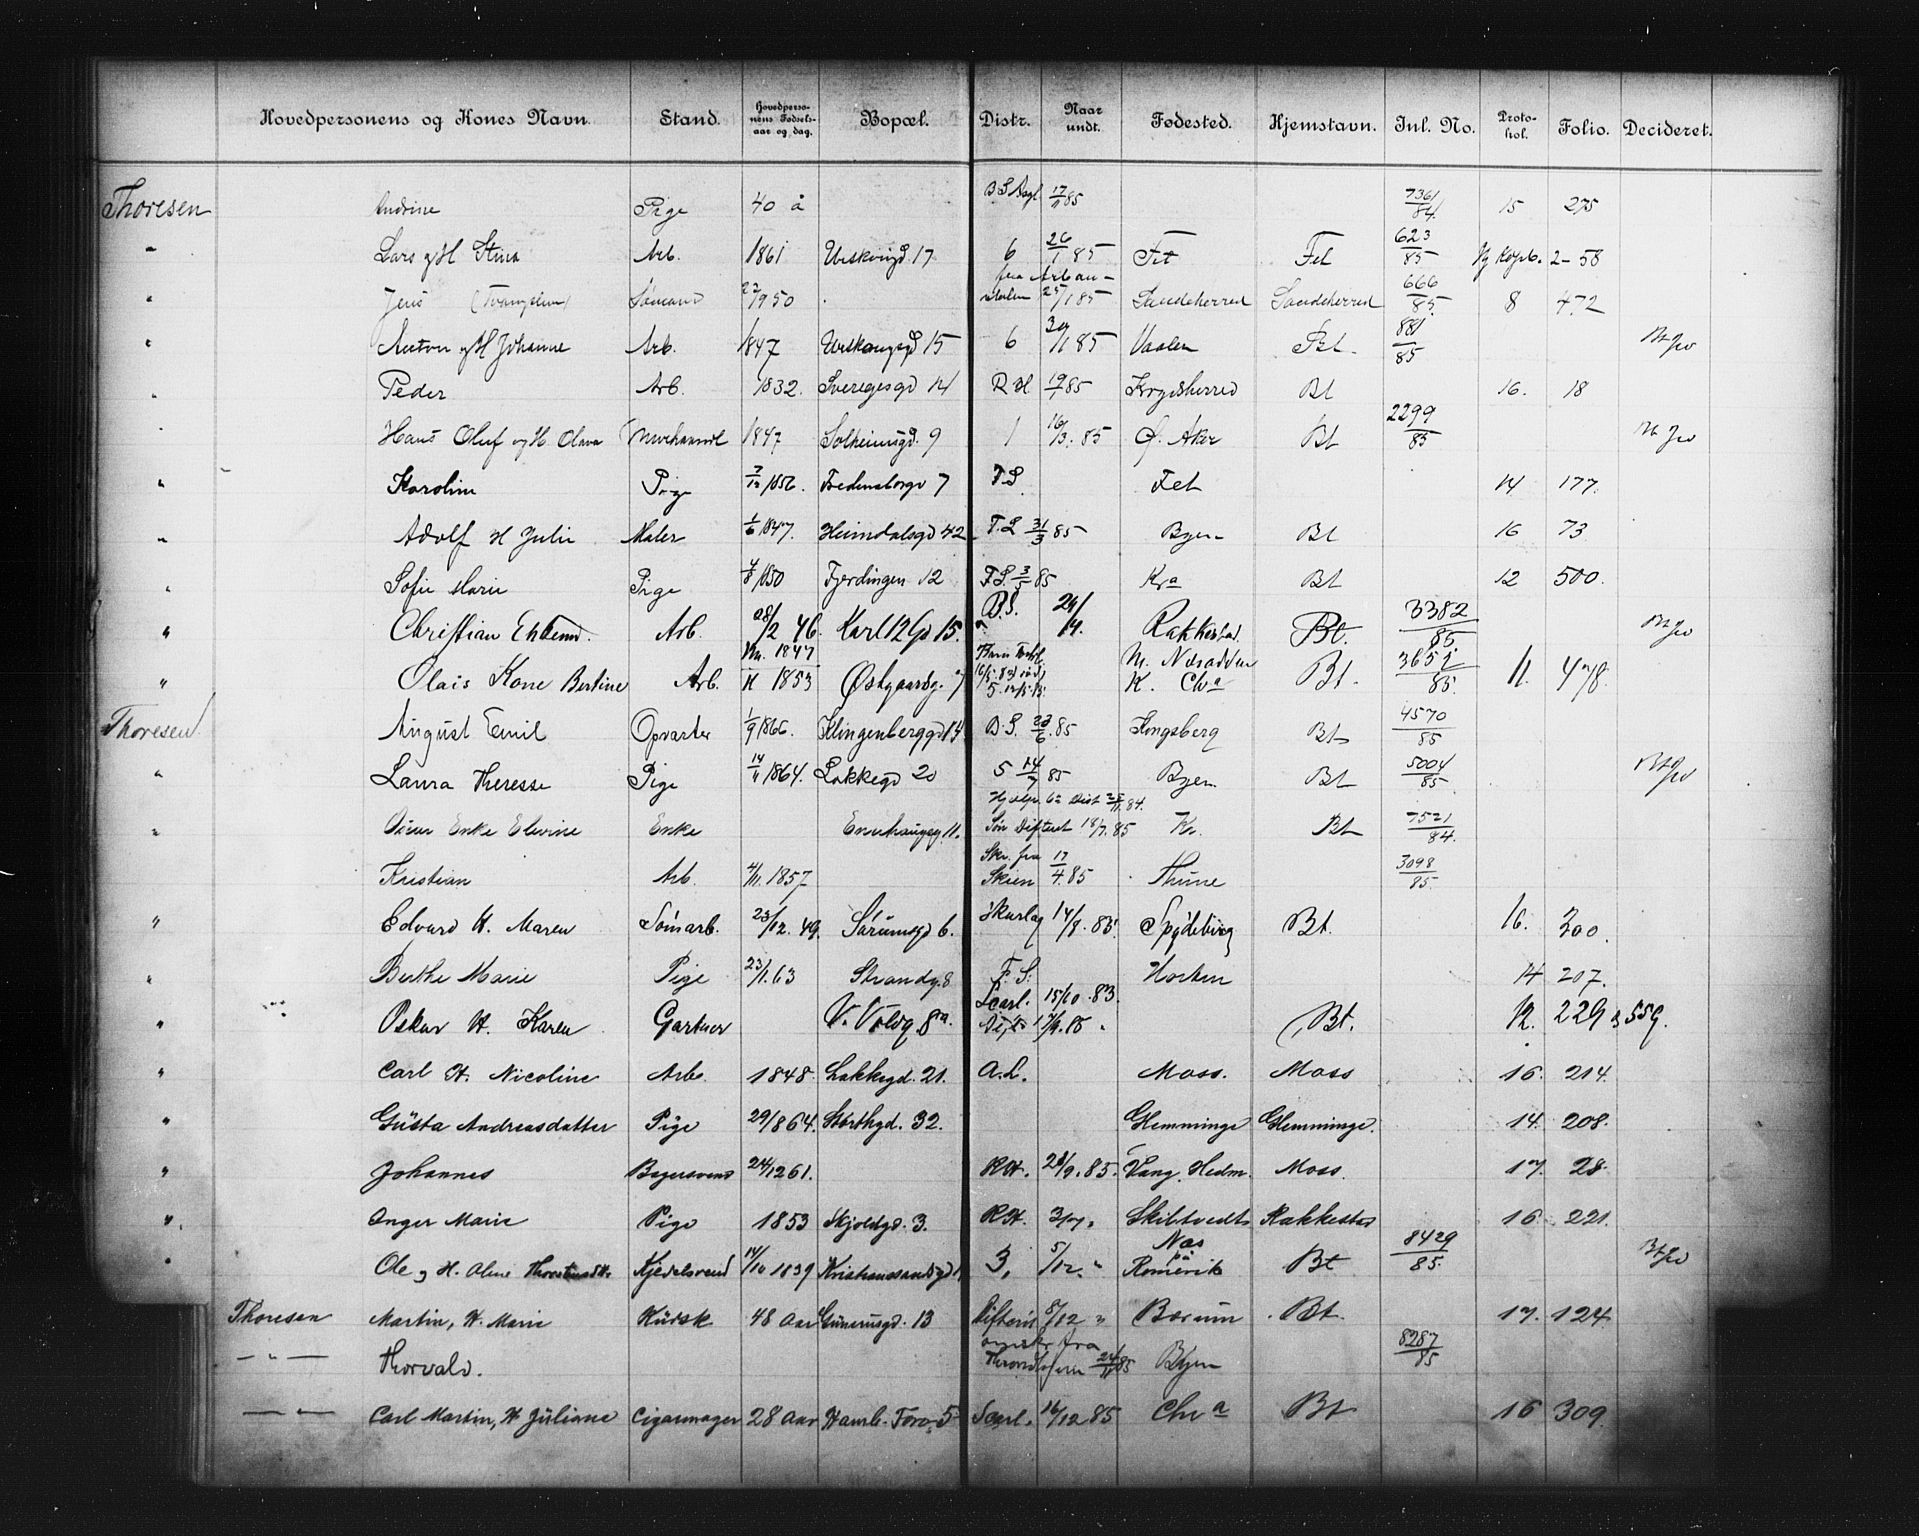 Hovedpersonens og Kones Navn. Stand. Hovedpersonens Fødselsaar og dag. Bopæl. Distr. Naar undt. Fødested. Hjemstavn. Jnl. No. Protokol. Folio. Decideret.
Thoresen Andrine Pige 40 å B S Asyl 17/11 85 7361/84 15 275
" Lars og H Stina Arb. 1861 17 6 26/1 85 Fet Fet 623/85 2-58
" Jens Sømand 22/9 50 fra Arbanstalen 25/1 85 Sandeherred Sandeherred 666/85 8 472
" Anton og H Johanne Arb. 1847 15 6 85 Vaaler Bt. 881/85
" Peder Arb. 1832. Sveregesgd 14 R H 19/1 85 Krydsherred Bt 16. 18
" Hans Oluf og H Olava 1847 Solheimsgd. 9 1 16/3. 85 Ø. Aker Bt 2299/85
" Karoline Pige 7/12 1856. Fredensborgv 7 F S Fet 14 177.
" Adolf H Julie Maler 1/6 1847. Heimdalsgd 42 F. L 31/3 85 Byen Bt 16 73
" Sofie Marie Pige 4/8 1850 Fjerdingen 12 F S. 3/5 85 Kra Bt 12 500.
" Christian Arb. 28/2 46. Karl 12 Gd 15. B.S. 29/4. Rakkestad. Bt. 3382/85.
" Olais Kone Bertine Arb. M. 1847 K 1853 Østgaardsg. 7 M. Næsodden K. Cha Bt. 3651/85. 11. 478.
Thoresen August Emil Opvarter 1/9 1866. Klingenberggd 14 B. S. 23/6. 85 Kongsberg Bt 4570/85
" Laura Therese Pige 14/11 1864. Lakkegd 20 5 14/7 85 Byen Bt 5004/85
" Enke Elevine Enke Enerhaugsg. 11. 6te Dist 84. Søn Difterit 18/7. 85 Kr. Bt 7521/84.
Kristian Arb. 4/11. 1857 Skr. fra Skien 17/4. 85 Thune 3098/85.
" Edvard H. Maren Sømarb. 23/12. 49. Sørumsgd 6. Skarlag 14/8. 85. Spydeberg Bt. 16. 300.
" Berthe Marie Pige 23/1. 63 Strandg. 8 F. S. Horten 14 207.
" Oskar H. Karen Gartner V. Voldg. 8 a. Scarl. 15/10. 83. Bt. 12. 229 & 559.
" Carl H. Nicoline Arb. 1848. Lakkegd. 21. A. L. Moss. Moss 16. 214.
" Güsta Andreasdatter Pige 29/1 864. Storthgd. 32. Glemminge Glemminge. 14. 208.
" Johannes Bagersvend 24/12 61. RH. 21/9. 85. Vang. Hedm. Moss. 17. 28.
" Inger Marie Pige 1853 Skjoldgd. 3. RH. 3/7. " Skibtvedt Rakkestad 16. 221.
" Ole og H. Oline Kjedelsvend 14/10 1839 Kristianssandsgd 3, 5/12. " Næs på Romerik Bt 8429/85.
Thoresen Martin, H. Marie Kudsk 48 Aar Grünersgd. 13 Difterit 8/12 " Bærum Bt. 17. 124.
—"— Thorvald. fra Throndhjem 85 Byen 8287/85
—"— Carl Martin, H. Juliane Cigarmager 28 Aar 5 Scarl. 16/12 85 Chra Bt 16 309.